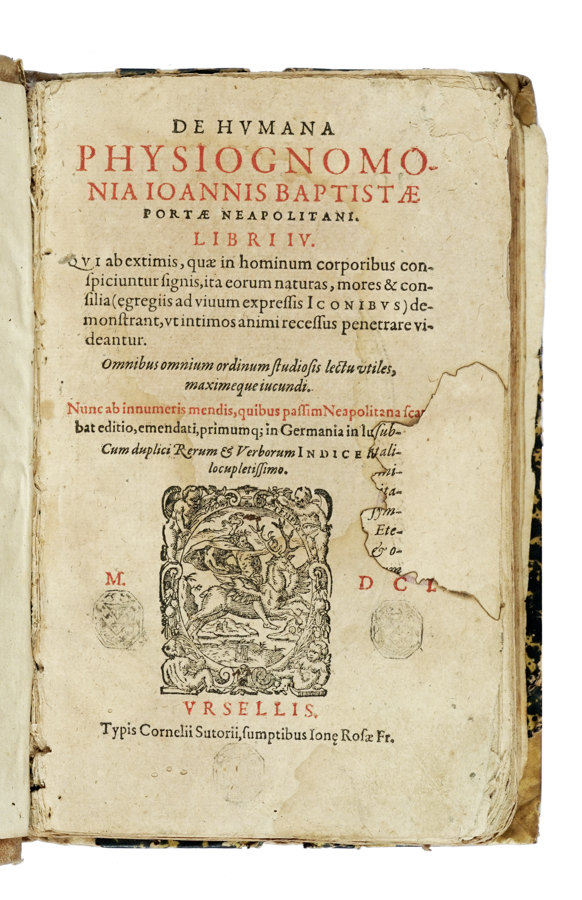 DE HVMANA
PHYSIOGNOMO-
NIA IOANNIS BAPTISTÆ
PORTÆ NEAPOLITANI.
LIBRI IV.
QVI ab extimis, quæ in hominum corporibus con-
spiciuntur signis, ita eorum naturas, mores & con-
silia (egregiis ad viuum expressis ICONIBVS) de-
monstrant, vt intimos animi recessus penetrare vi-
deantur.
Omnibus omnium ordinum studiosis lectu vtiles,
maximeque iucundi.
Nunc ab innumeris mendis, quibus passim Neapolitana sca
bat editio, emendati, primumq; in Germania in lu
sub-
Cum duplici Rerum & Verborum INDICE
ali-
locupletissimo.
mi-
ita-
ym-
Ete-
& o-
M. D C I.
VRSELLIS.
Typis Cornelii Sutorii, sumptibus Ionę Rosæ Fr.